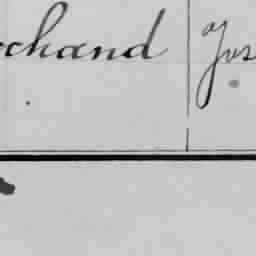 chand Jos